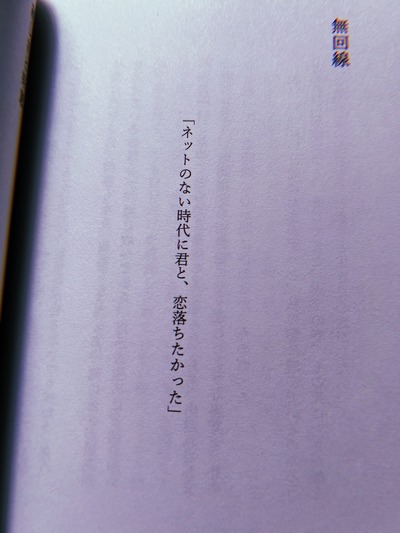 無回線
「ネットのない時代に君と、恋落ちたかった」